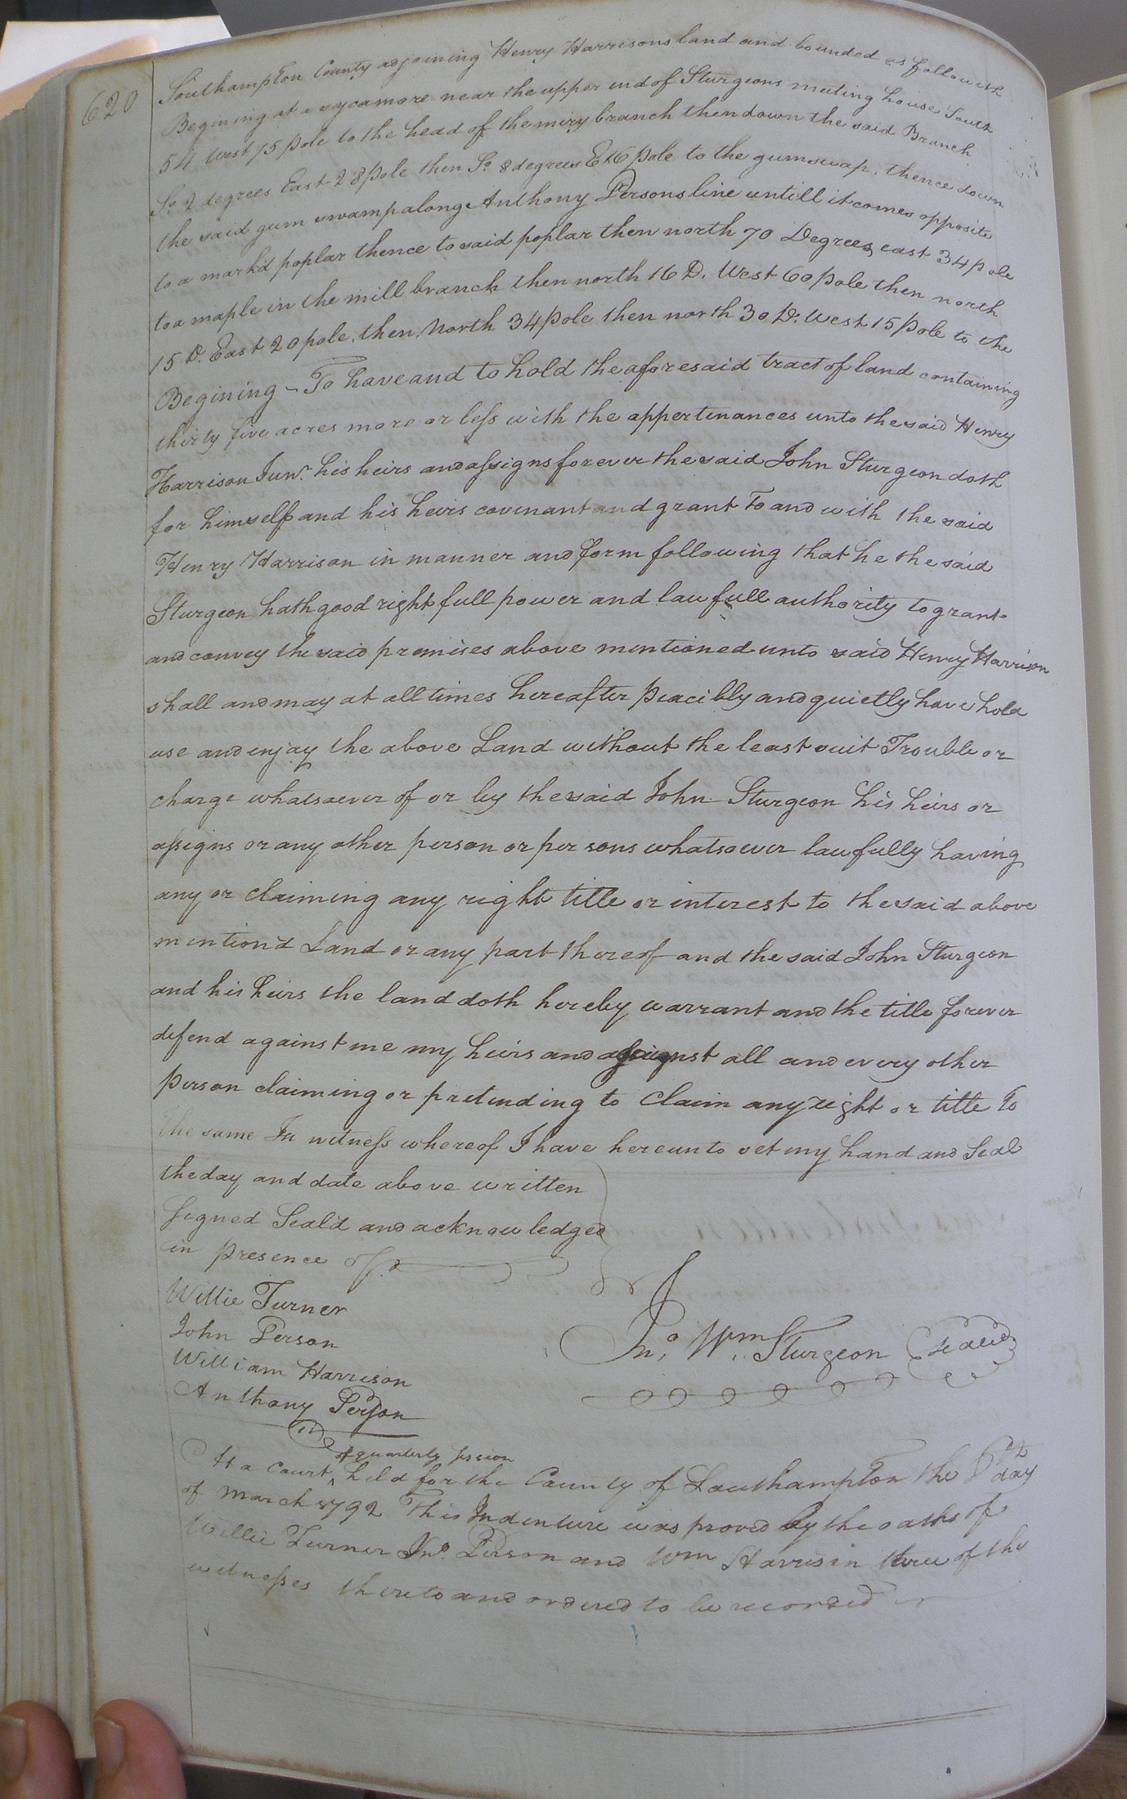 620
Southampton County adjoining Henry Harrisons land and bounded as followeth
Begining at a sycamore near the upper end of Sturgeons meeting house South
54 West 75 pole to the head of the miry branch then down the said Branch
So. 2 degrees East 28 pole then So. 8 degrees E 16 pole to the gum swap, thence down
the said gum swamp along Anthony Persons line untill it comes opposite
to a mark'd poplar thence to said poplar then north 70 Degrees east 34 pole
to a maple in the mill branch then north 16 D. West 60 pole then north
15 D. East 20 pole, then North 34 pole then north 30 D. West 15 pole to the
Begining - To have and to hold the aforesaid tract of land containing
thirty five acres more or less with the appertinances unto the said Henry
Harrison Junr. his heirs and assigns forever the said John Sturgeon doth
for himself and his heirs covenant and grant to and with the said
Henry Harrison in manner and form following that he the said
Sturgeon hath good right full power and lawfull authority to grant
and convey the said premises above mentioned unto said Henry Harrison
shall and may at all times hereafter peacibly and quietly have hold
use and enjay the above Land without the least suit Trouble or
charge whatsoever of or by the said John Sturgeon his heirs or
assigns or any other person or persons whatsoever lawfully having
any or claiming any right title or interest to the said above
mention'd Land or any part thereof and the said John Sturgeon
and his heirs the land doth hereby warrant and the title forever
defend against me my heirs and against all and every other
person claiming or pretending to claim any right or title to
the same In witness whereof I have hereunto set my hand and Seal
the day and date above written
Signed Seal'd and acknowledged
in presence of
Willie Turner
John Person
William Harrison
Anthony Person
Jno. Wm. Sturgeon Seal
of quarterly session
At a Court held for the County of Southampton the 8th day
of March 1792 This Indenture was proved by the oaths of
Willie Turner Jno. Person and Wm Harrison three of the
witnesses thereto and ordered to be recorded